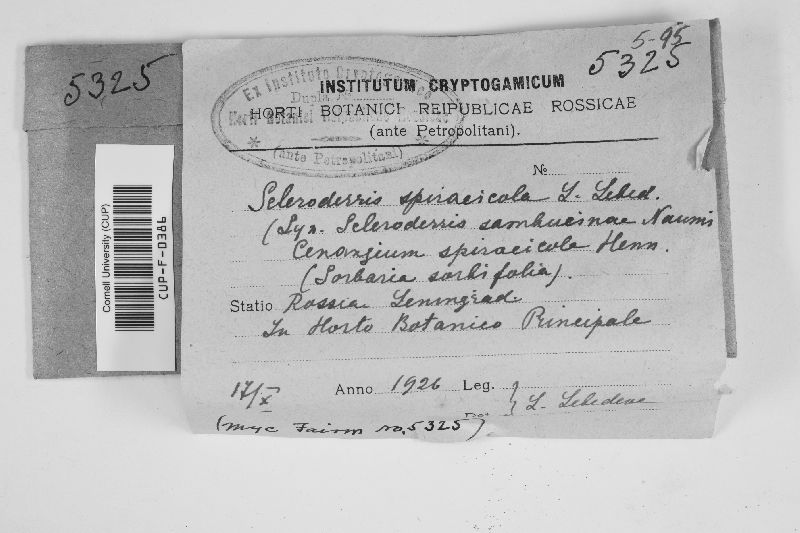 5325
5-95
5325
Ex Instituto Cryptogamico
Horti Botanici Reipublicae Rossicae
(ante Petropolitani)
INSTITUTUM CRYPTOGAMICUM
HORTI BOTANICI REIPUBLICAE ROSSICAE
(ante Petropolitani).
№
Scleroderris spiraeicola L. Lebed.
(Syn. Scleroderris sambucinae Naumi
Cenangium spiraeicola Henn.
(Sorbaria sorbifolia).
Statio Rossia. Leningrad.
In Horto Botanico Principale
17/X Anno 1926 Leg.
L. Lebedeva
(myc Fairm no. 5325)
Cornell University (CUP)
CUP-F-0386